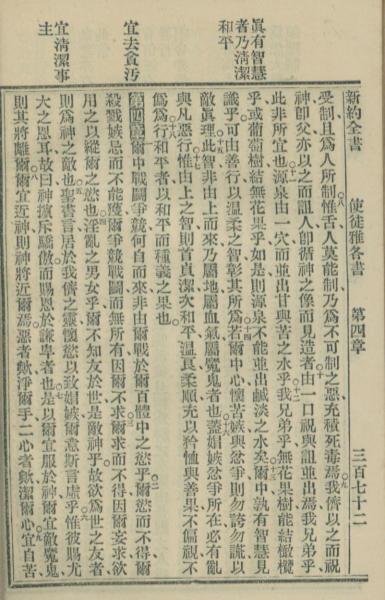 新約全書 使徒雅各書 第四章 三百七十二
眞有智慧
者乃淸潔
和平
宜去貪污
宜淸潔事
主
受制且爲人所制、八惟舌人莫能制乃爲不可制之惡充積死毒焉、九我儕以之而祝
神卽父亦以之而詛人卽循神之像而見造者、十由一口祝與詛並出焉我兄弟乎
此非所宜也、十一源泉由一穴而並出甘與苦之水乎、十二我兄弟乎無花果樹能結橄欖
乎或葡萄樹結無花果乎如是則源泉不能並出鹹淡之水矣、十三爾中孰有智慧見
識乎可由善行以溫柔之智彰其所爲、十四若爾中心懷苦嫉與忿爭則勿誇勿謊以
敵眞理、十五此智非由上而來乃屬地屬血氣屬魔鬼者也、十六蓋娼嫉忿爭所在必有亂
與凡惡行、十七惟由上之智則首貞潔次和平溫良柔順充以矜恤與善果不偏視不
僞爲、十八行和平者以和平而種義之果也
第四章一爾中戰鬬爭競何自而來非由爾戰於爾百體中之慾乎、二爾慾而不得爾
殺戮嫉忌而不能獲爾爭競戰鬬而無所有因爾不求、三爾求而不得因爾妄求欲
用之以縱爾之慾也、四淫亂之男女乎爾不知友於世是敵神乎故欲爲世之友者
則爲神之敵也、五聖書言居於我儕之靈戀慾以致娼嫉爾意斯言虛乎、六惟彼賜尤
大之恩耳故曰神擯斥驕傲而賜恩於謙卑者也、七是以爾宜服於神宜敵魔鬼
則其將離爾、八爾宜近神則神將近爾焉惡者歟淨爾手二心者歟潔爾心、九宜自苦